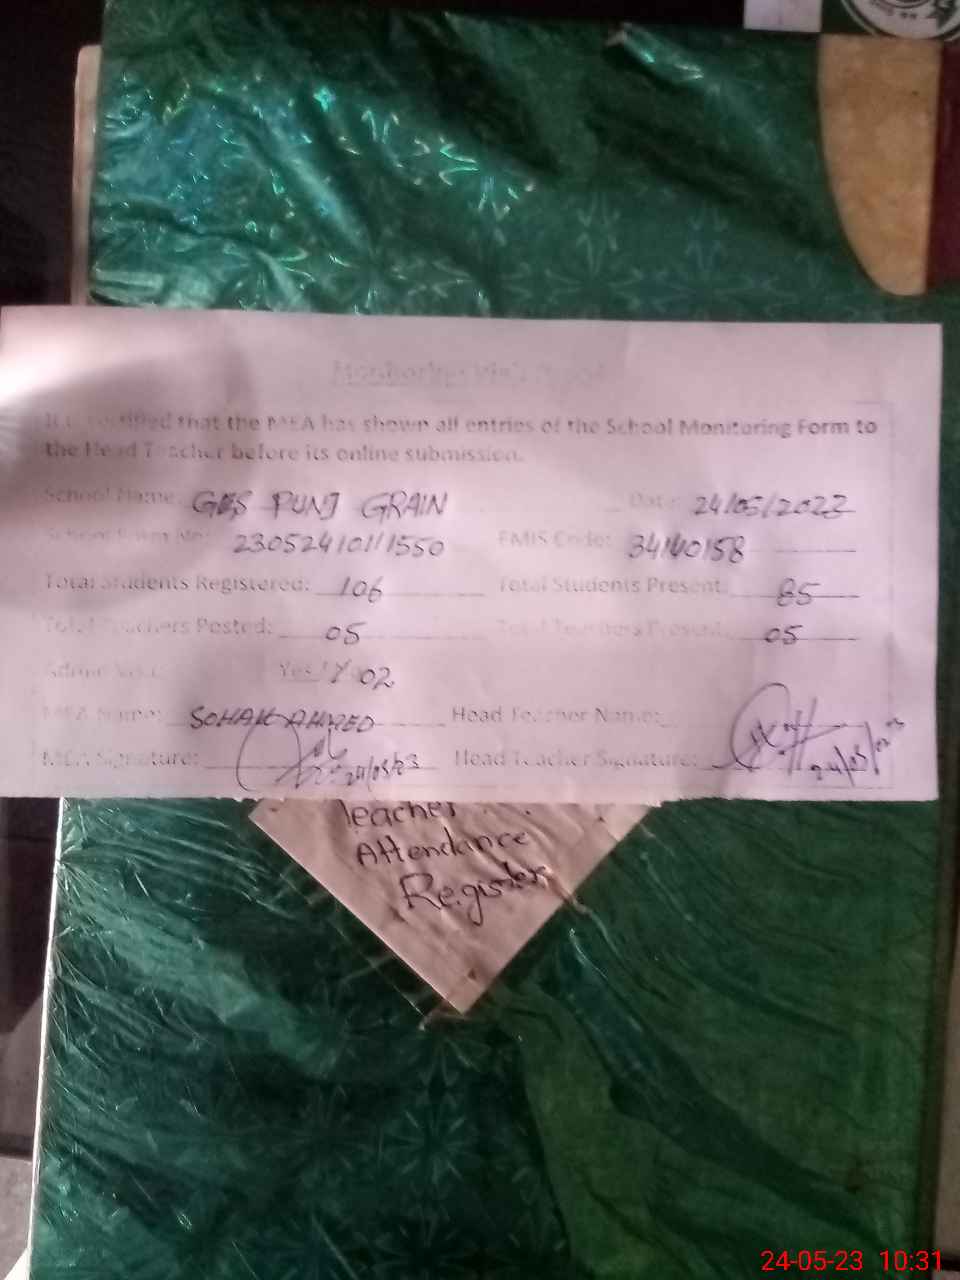 Monitoring Visit Proof
It is certified that the MEA has shown all entries of the School Monitoring Form to
the Head Teacher before its online submission.
School Name: GES PUNJ GRAIN Date: 24/05/2023
School Form No: 23052410111550 EMIS Code: 34140158
Total Students Registered: 106 Total Students Present: 85
Total Teachers Posted: 05 Total Teachers Present: 05
Yes / 02
MEA Name: SOHAIL AHMED Head Teacher Name:
MEA Signature: 24/05/23 Head Teacher Signature: 24/05/2023
Teacher
Attendance
Register
24-05-23 10:31